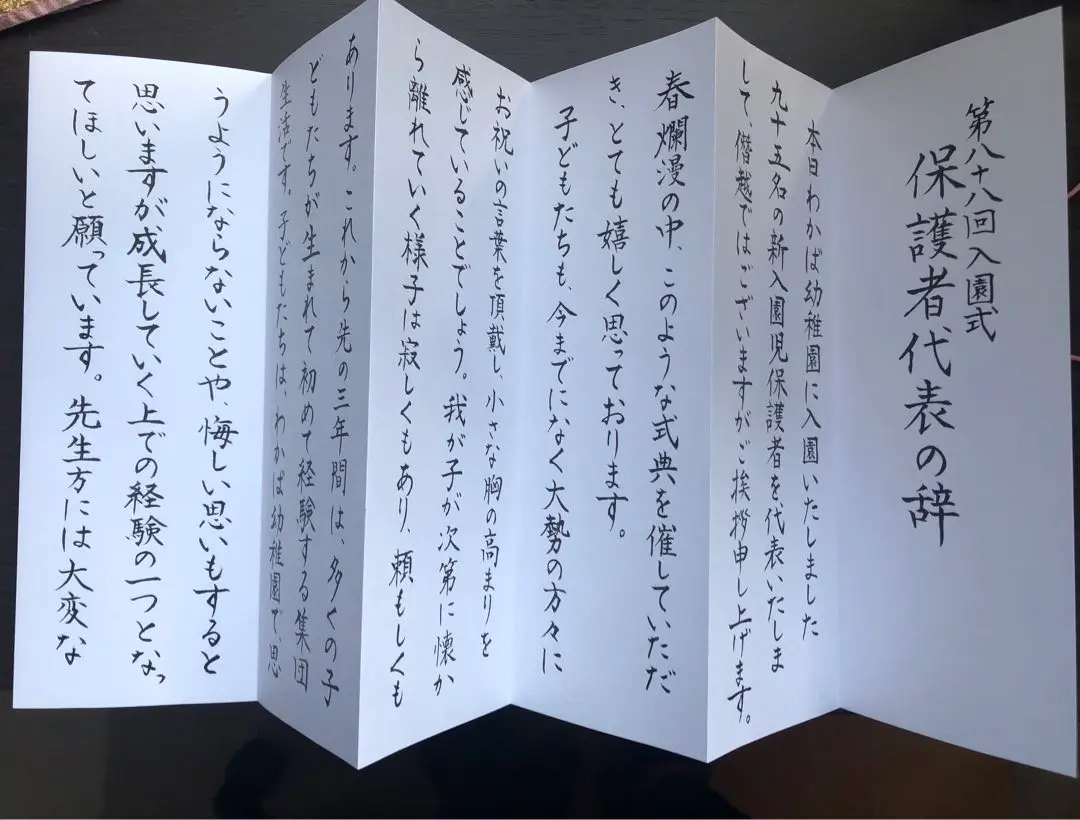 第八十八回入園式
保護者代表の辞
本日わかば幼稚園に入園いたしました
九十五名の新入園児保護者を代表いたしま
して、僭越ではございますがご挨拶申し上げます。
春爛漫の中、このような式典を催していただ
き、とても嬉しく思っております。
子どもたちも、今までになく大勢の方々に
お祝いの言葉を頂戴し、小さな胸の高まりを
感じていることでしょう。我が子が次第に懐か
ら離れていく様子は寂しくもあり、頼もしくも
あります。これから先の三年間は、多くの子
どもたちが生まれて初めて経験する集団
生活です。子どもたちは、わかば幼稚園で、思
うようにならないことや、悔しい思いもすると
思いますが、成長していく上での経験の一つとなっ
てほしいと願っています。先生方には大変な